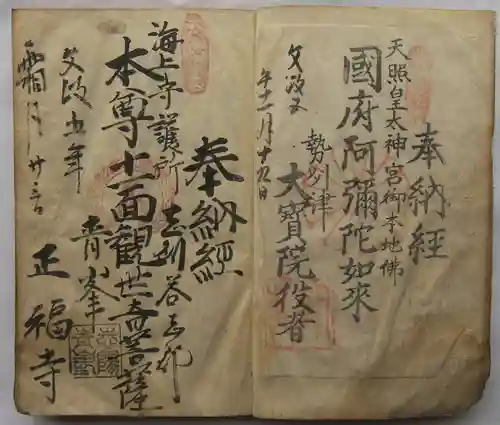 奉納經
天照皇太神宮御本地佛
國府阿彌陀如來
文政五
年十一月十九日
勢州津
大寶院役者
奉納經
志州答志郡
海上守護所
本尊十一面觀世音菩薩
青峯
文政五年
霜月廿三日
正福寺